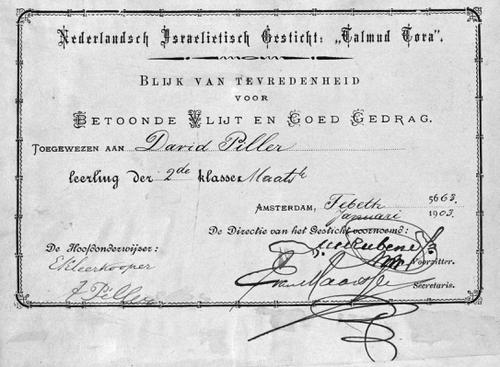 Nederlandsch Israelietisch Gesticht: „Talmud Tora".
BLIJK VAN TEVREDENHEID
VOOR
BETOONDE VLIJT EN GOED GEDRAG.
TOEGEWEZEN AAN David Piller
leerling der 2de klasse
AMSTERDAM, Tebeth 5663.
Januari 1903.
De Directie van het Gesticht voornoemd:
De Hoofdonderwijzer:
Voorzitter.
EKleerkooper
Secretaris.
J Piller